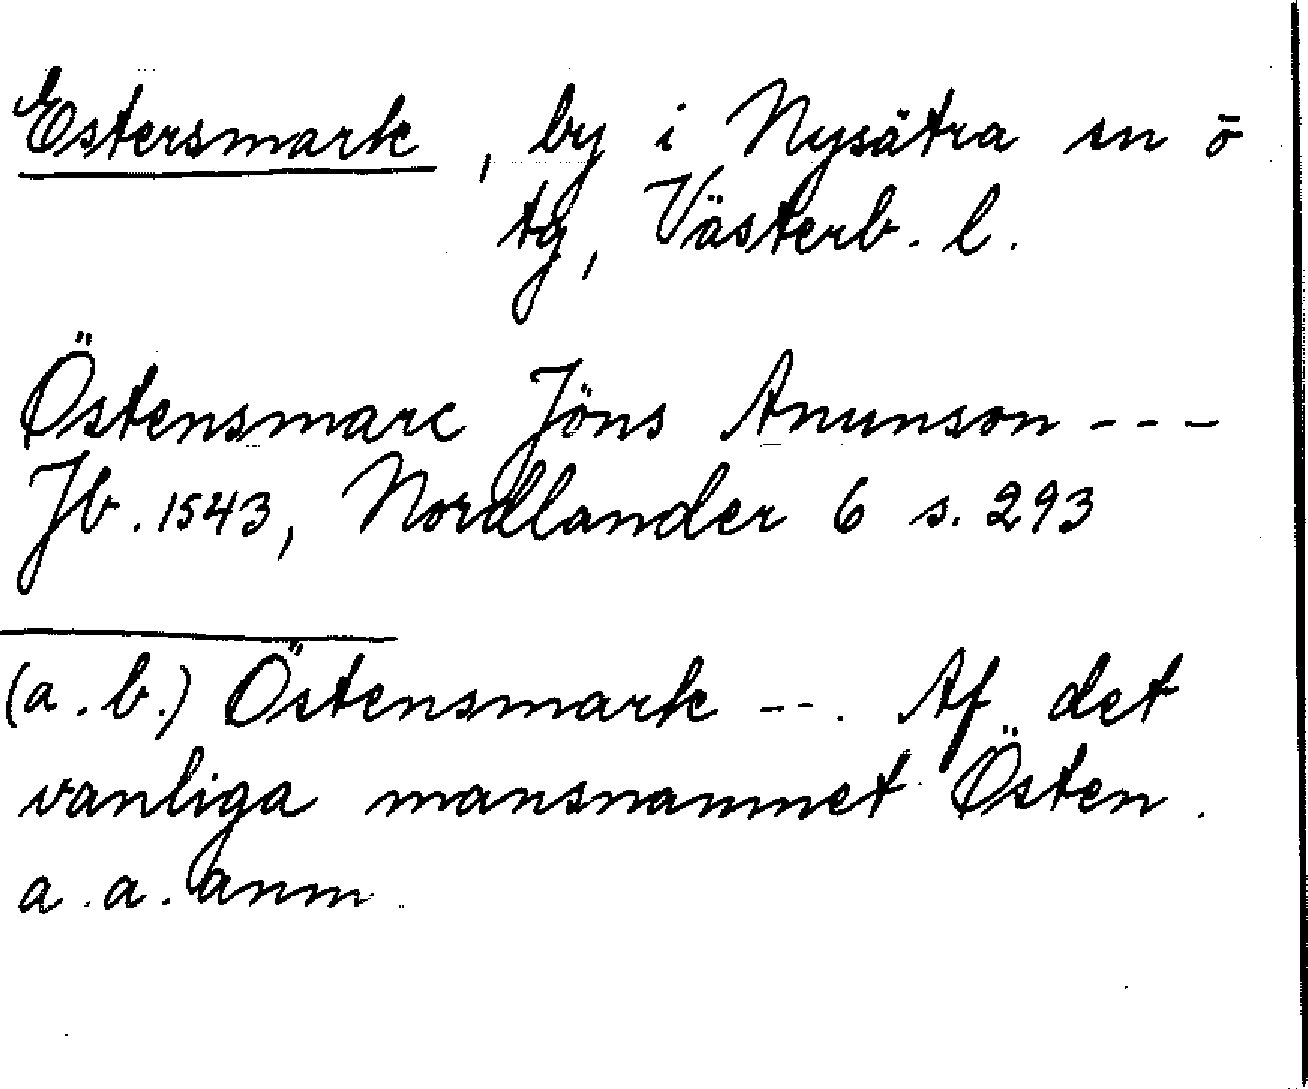 Estersmark, by i Nysätra sn ö
tg, Västerb. l.
Östensmarc Jöns Anunson ---
Jb. 1543, Nordlander 6 s. 293
(a. b.) Östensmark --. Af det
vanliga mansnamnet Östen.
a. a. anm.